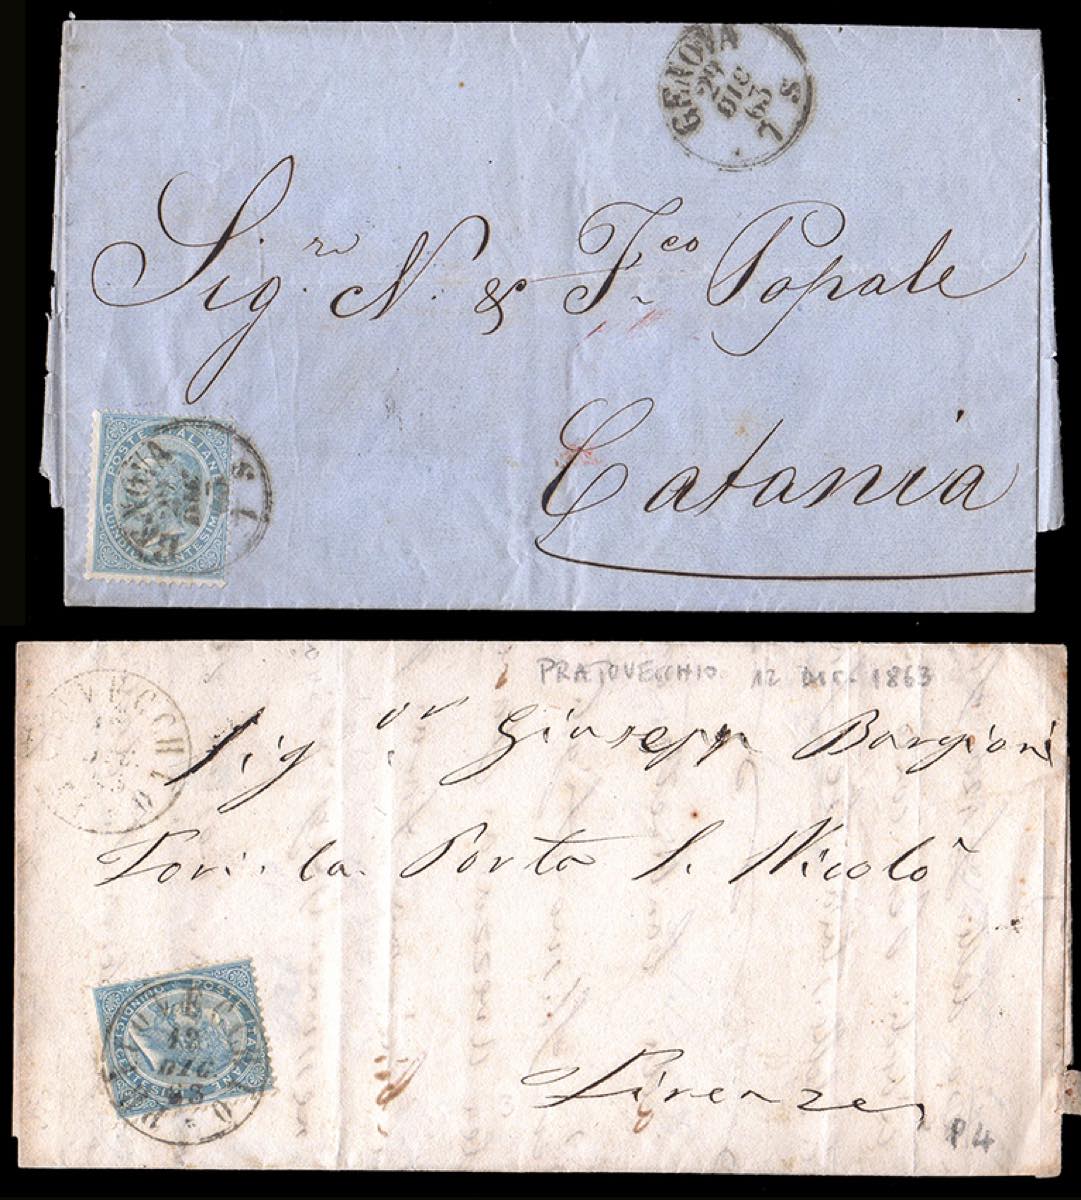 GENOVA
29
DIC
63
7 S.
Sig.ri N. & F.co Papale
Catania
POSTE ITALIANE
QUINDICI CENTESIMI
GENOVA
DIC
7 S
PRATOVECCHIO 12 DIC. 1863
Sig.or Giuseppe Bargioni
Fori la Porta S. Nicolò
Firenze
POSTE ITALIANE
QUINDICI CENTESIMI
PRATOVECCHIO
12
DIC
63
P4